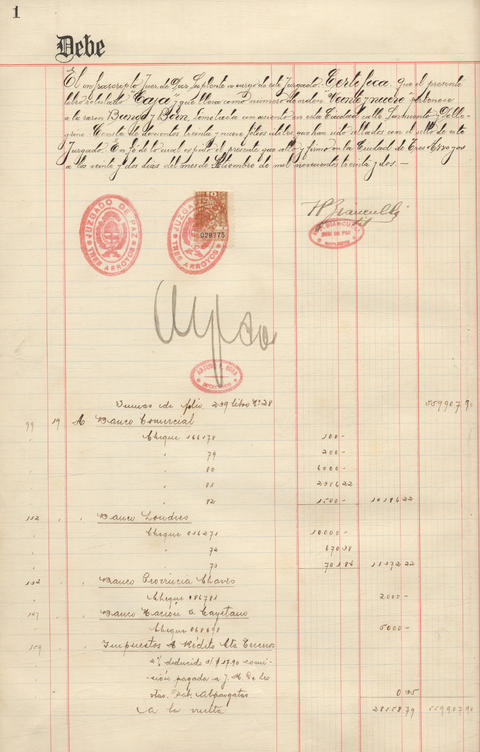 1
Debe
El infrascripto Juez de Paz Suplente a cargo de este Juzgado. Certifica. que el presente
libro rotulado "Caja" que lleva como numero de orden "Veinte y nueve" pertenece
a la razon Bunge y Born, domiciliada con asiento en esta Ciudad calle Sarmiento y Pelle-
grini. Consta de doscientos treinta y nueve folios utiles que han sido sellados con el sello de este
Juzgado. En fé de lo cual expido el presente que sello y firmo en la Ciudad de Tres Arroyos
a los veinte y dos dias del mes de de mil novecientos treinta y dos.—
JUZGADO DE PAZ
TRES ARROYOS
JUZGADO DE PAZ
TRES ARROYOS
028775
JUEZ DE PAZ
SUPLENTE
Venido de folio 239 libro Nº 28 559907.90
99 19 A Banco Comercial
Cheque 166178 100-
" 79 200-
" 80 6000-
" 81 2316.22
" 82 1500- 10186.22
112 " " Banco Londres
" Cheque 016271 10000-
" " 72 670.18
" " 73 701.86 11372.22
112 " " Banco Provincia Chaves
Cheque 086781 2000-
127 " " Banco Nación G. Cayetano
Cheque 5000-
159 " " Impuestos A Rédito Cta
% deducido s/$ 17.90 comi-
sión pagada a J. M. De los
Alpargatas 0.35
A la vuelta 28558.79 559907.90